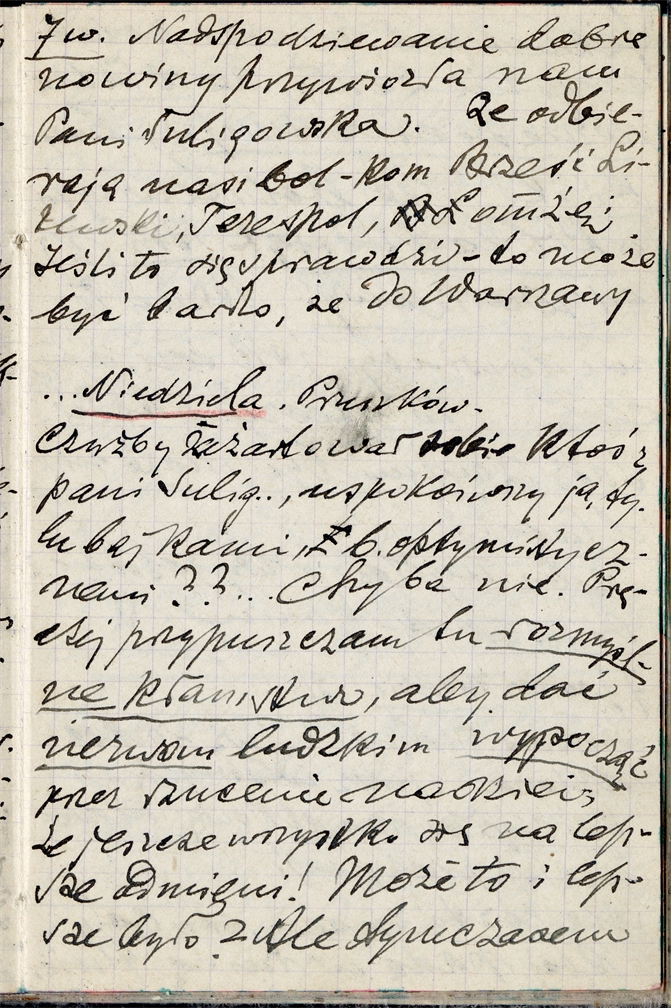 7 w. Nadspodziewanie dobre
nowiny przywiozła nam
Pani Suligowska. Że odbie-
rają nasi bol-kom Brześć Li-
tewski, Terespol, Łomżę i
Jeśli to się sprawdzi - to może
być bardo, że do Warszawy
... Niedziela. Pruszków.
Czyżby zażartował sobie ktoś z
pani Sulig.., uspokoiwszy ją, ty-
lu bajkami, b. optymistycz-
nemi??... Chyba nie. Prę-
dzej przypuszczam tu rozmyśl-
ne kłamstwo, aby dać
nerwom ludzkim wypocząć
przez rzucenie nadziei,
że jeszcze wszystko się na lep-
sze odmieni! Może to i lep-
sze było? Ale tymczasem